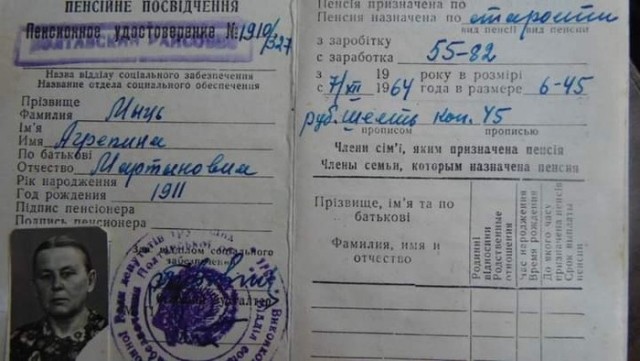 ПЕНСІЙНЕ ПОСВІДЧЕННЯ
Пенсионное удостоверение № 1910/327
ПОЛТАВСКИЙ РАЙСОБЕС
Назва відділу соціального забезпечення
Название отдела социального обеспечения
Прізвище
Фамилия Минь
Ім'я
Имя Агрепина
По батькові
Отчество Мартыновна
Рік народження
Год рождения 1911
Підпис пенсіонера
Подпись пенсионера
Зав. відділом соціального
забезпечення
бухгалтер
Пенсія призначена по
Пенсия назначена по старости
вид пенсії вид пенсии
з заробітку
с заработка 55-82
з 19 року в розмірі
с 7/XII 1964 года в размере 6-45
руб. Шесть коп. 45
прописом прописью
Члени сім'ї, яким призначена пенсія
Члены семьи, которым назначена пенсия
Прізвище, ім'я та по
батькові
Фамилия, имя и
отчество
Родинні
відносини
Родственные
отношения
Час народження
Время рождения
До якого часу
призначена пенсія
Срок выплаты
пенсии